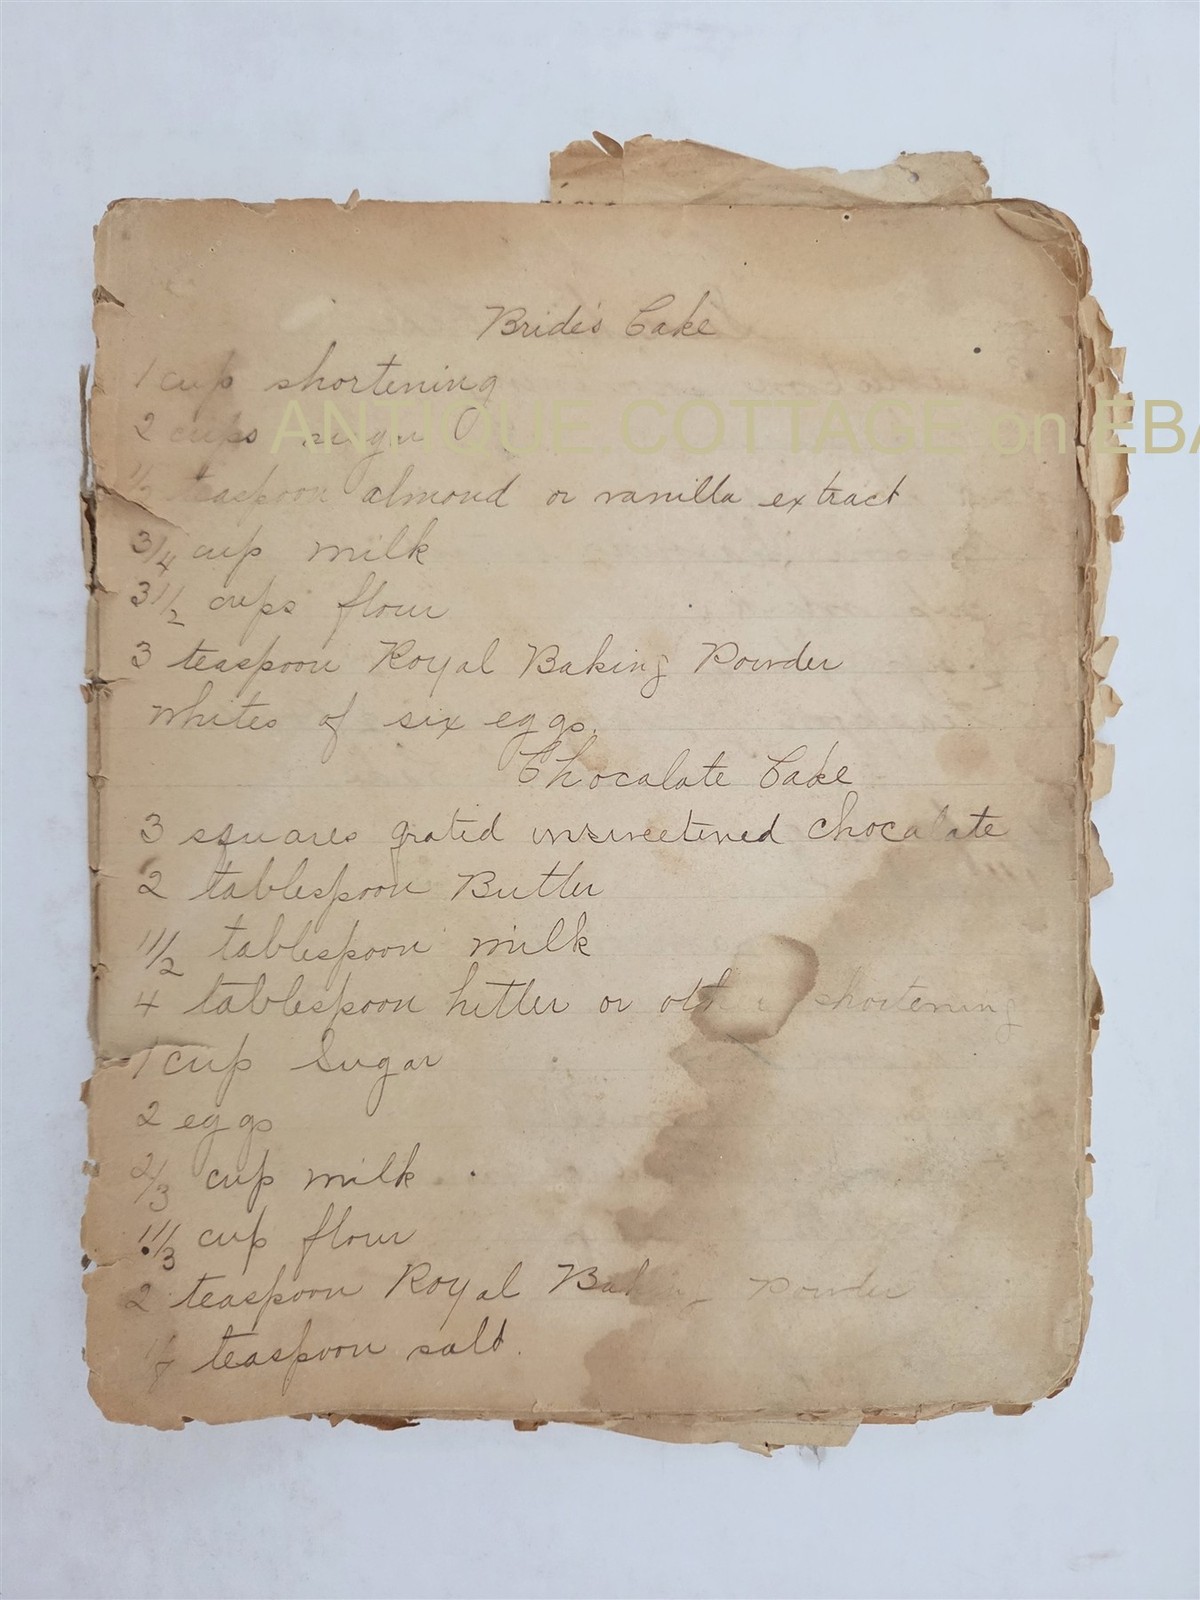 Bride's Cake
1 cup shortening
ANTIQUE COTTAGE on EBA
2 cups sugar
1/2 teaspoon almond or vanilla extract
3/4 cup milk
3 1/2 cups flour
3 teaspoon Royal Baking Powder
whites of six eggs.
Chocalate Cake
3 squares grated unsweetened chocalate
2 tablespoon Butter
1 1/2 tablespoon milk
4 tablespoon or other shortening
1 cup Sugar
2 eggs
2/3 cup milk
1 1/3 cup flour
2 teaspoon Royal Baking Powder
teaspoon salt.